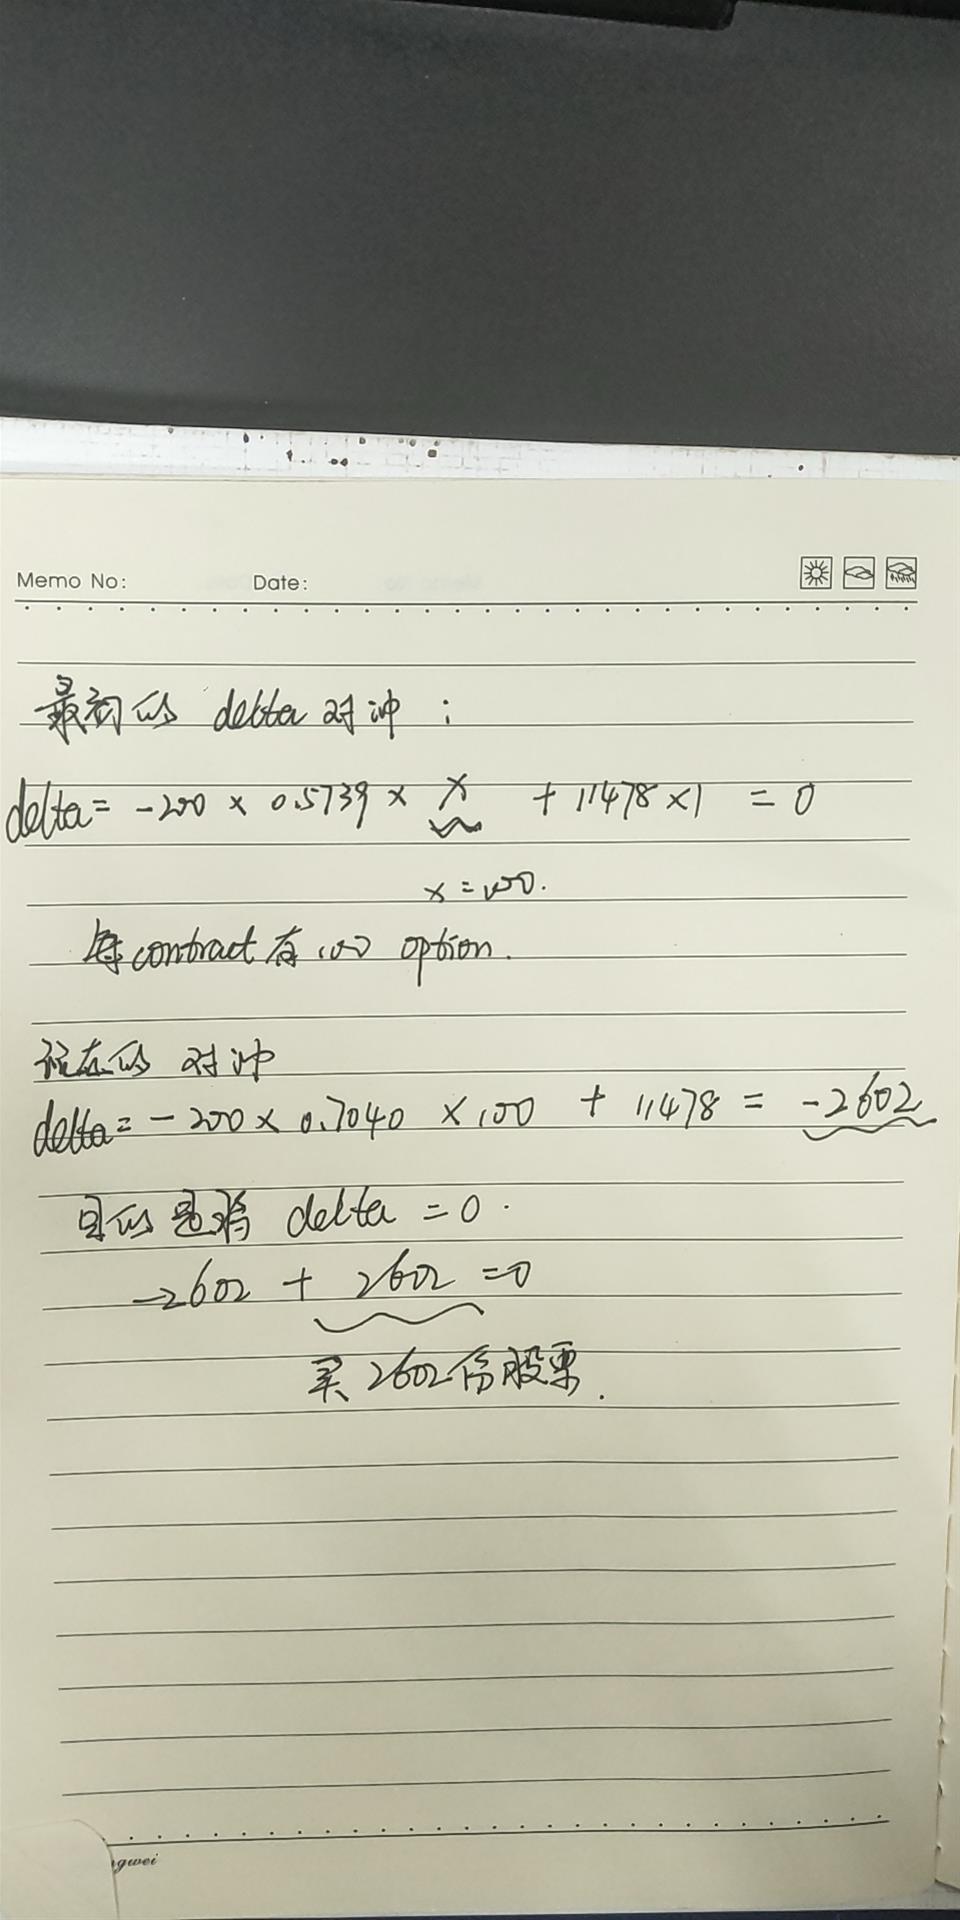 Memo No: Date:
最初的 delta 对冲：
delta = -200 × 0.5739 × x + 11478 × 1 = 0
x = 100.
每 contract 有 100 option.
现在的 对冲
delta = - 200 × 0.7040 × 100 + 11478 = -2602
目的是将 delta = 0.
-2602 + 2602 = 0
买 2602份股票.
gwei